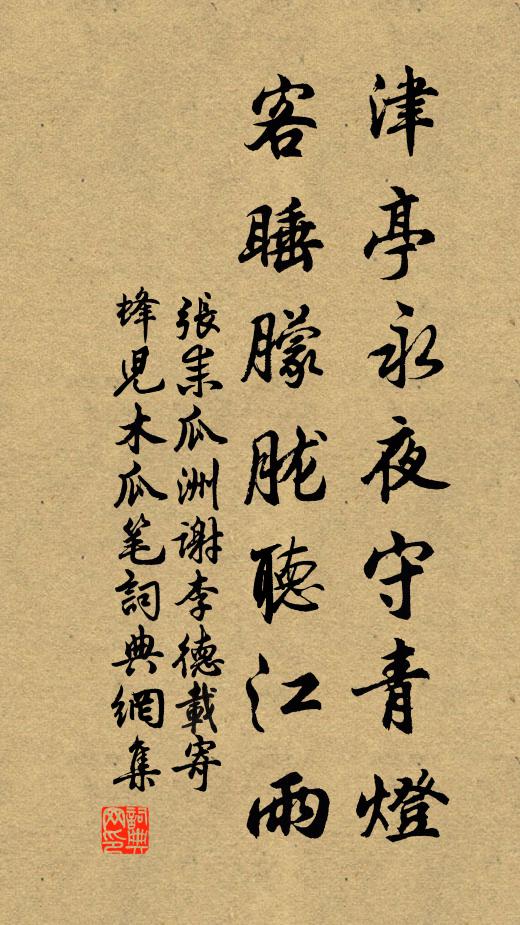 津亭永夜守青燈
客睡朦朧聽江雨
張耒瓜洲謝李德載寄
蜂兒木瓜笔詞典網集
詞典網印